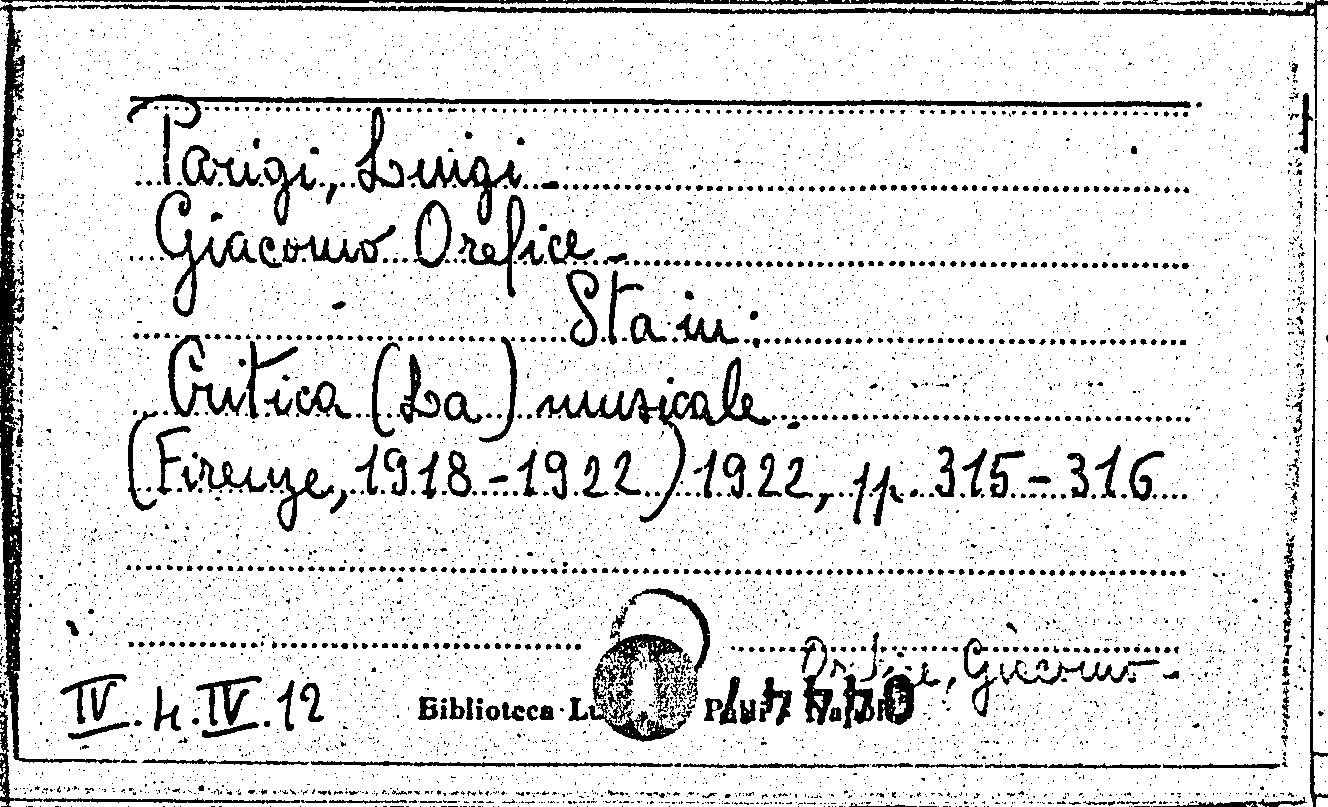 Parigi, Luigi -
Giacomo Orefice -
Sta in:
Critica (La) musicale.
(Firenze, 1918-1922) 1922, pp. 315-316
Orefice, Giacomo -
IV.4.IV.12
Biblioteca